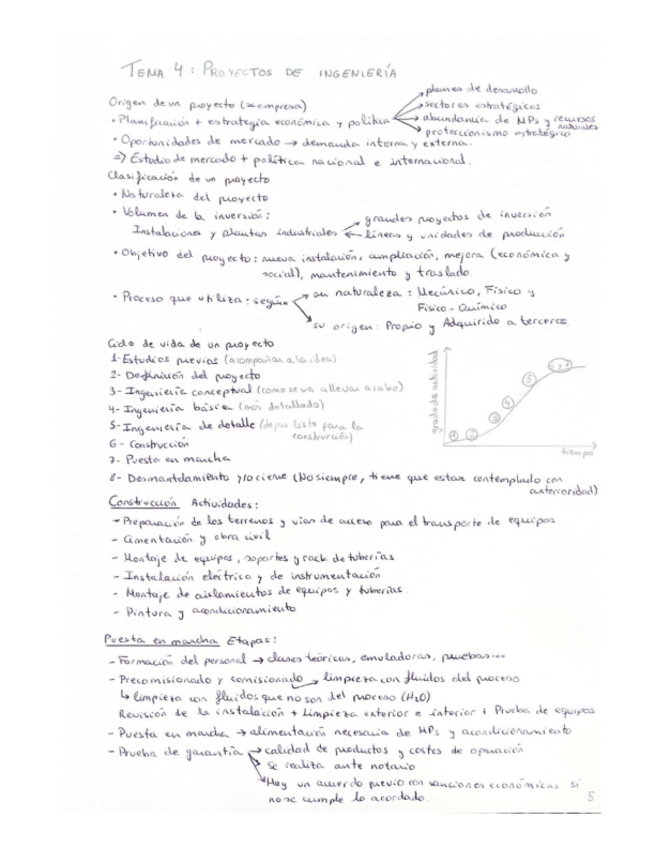 TEMA 4: PROYECTOS DE INGENIERÍA
Origen de un proyecto (≈ empresa)
• Planificación + estrategia económica y política
planes de desarrollo
sectores estratégicos
abundancia de MPs y recursos naturales
proteccionismo estratégico
• Oportunidades de mercado → demanda interna y externa.
=> Estudio de mercado + política nacional e internacional.
Clasificación de un proyecto
• Naturaleza del proyecto
• Volumen de la inversión:
grandes proyectos de inversión
Instalaciones y plantas industriales
líneas y unidades de producción
• Objetivo del proyecto: nueva instalación, ampliación, mejora (económica y
social), mantenimiento y traslado.
• Proceso que utiliza: según
su naturaleza: Mecánico, Físico y
Físico-Químico
su origen: Propio y Adquirido a terceros.
Ciclo de vida de un proyecto
1- Estudios previos (acompañan a la idea)
2- Definición del proyecto
3- Ingeniería conceptual (como se va a llevar a cabo)
4- Ingeniería básica (más detallado)
5- Ingeniería de detalle (dejar listo para la
construcción)
6- Construcción
7- Puesta en marcha
8- Desmantelamiento y/o cierre (No siempre, tiene que estar contemplado con
anterioridad)
grado de actividad
1 2 3 4 5 6 y 7
tiempo
Construcción Actividades:
- Preparación de los terrenos y vías de acceso para el transporte de equipos
- Cimentación y obra civil
- Montaje de equipos, soportes y rack de tuberías
- Instalación eléctrica y de instrumentación
- Montaje de aislamientos de equipos y tuberías.
- Pintura y acondicionamiento
Puesta en marcha Etapas:
- Formación del personal → clases teóricas, emuladoras, pruebas...
- Precomisionado y comisionado → limpieza con fluidos del proceso
↳ limpieza con fluidos que no son del proceso (H2O)
Revisión de la instalación + Limpieza exterior e interior + Prueba de equipos
- Puesta en marcha → alimentación necesaria de MPs y acondicionamiento
- Prueba de garantía → calidad de productos y costes de operación
Se realiza ante notario
Hay un acuerdo previo con sanciones económicas si
no se cumple lo acordado.
5